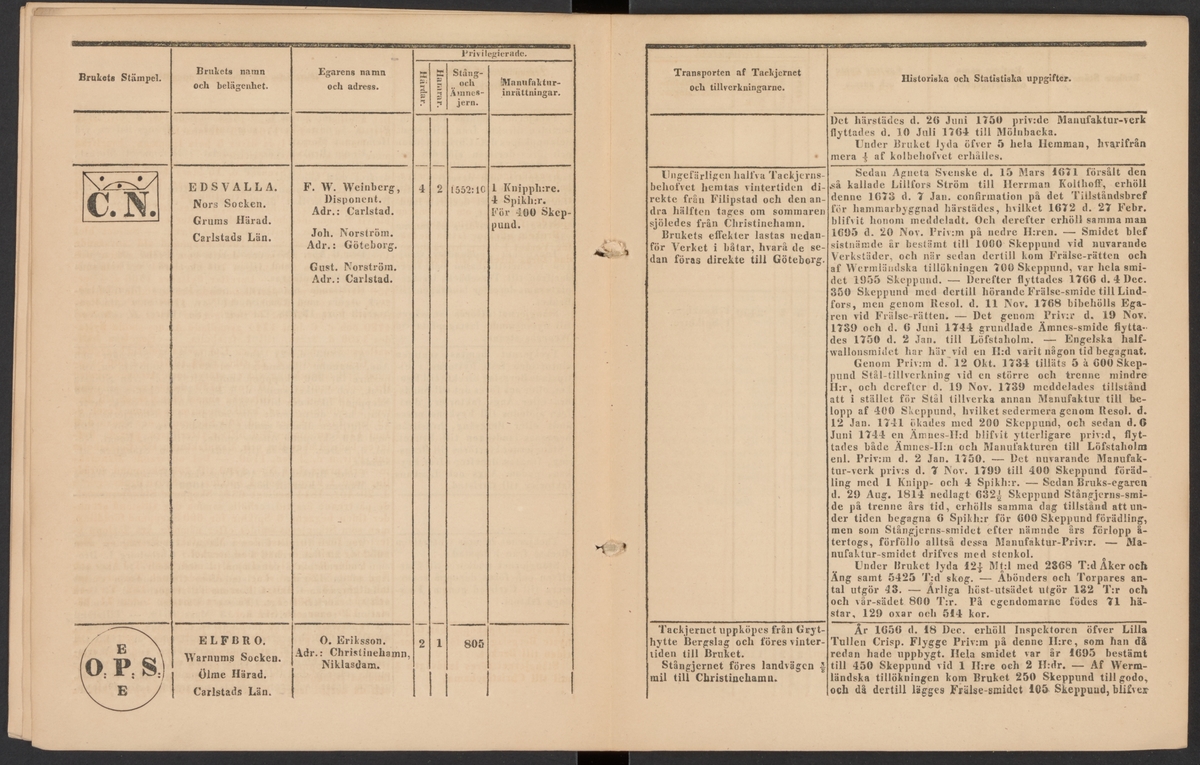 Brukets Stämpel.
Brukets namn
och belägenhet.
Egarens namn
och adress.
Privilegierade.
Härdar.
Hamrar.
Stång-
och
Ämnes-
jern.
Manufaktur-
inrättningar.
Transporten af Tackjernet
och tillverkningarne.
Historiska och Statistiska uppgifter.
Det härstädes d. 26 Juni 1750 priv:de Manufaktur-verk
flyttades d. 10 Juli 1764 till Mölnbacka.
Under Bruket lyda öfver 5 hela Hemman, hvarifrån
mera ⅓ af kolbehofvet erhålles.
C. N.
EDSVALLA.
Nors Socken.
Grums Härad.
Carlstads Län.
F. W. Weinberg,
Disponent.
Adr.: Carlstad.
Joh. Norström.
Adr.: Göteborg.
Gust. Norström.
Adr.: Carlstad.
4
2
1552:10
1 Knipph:re.
4 Spikh:r.
För 400 Skep-
pund.
Ungefärligen halfva Tackjerns-
behofvet hemtas vintertiden di-
rekte från Filipstad och den an-
dra hälften tages om sommaren
sjöledes från Christinehamn.
Brukets effekter lastas nedan-
för Verket i båtar, hvarå de se-
dan föras direkte till Göteborg.
Sedan Agneta Svenske d. 15 Mars 1671 försålt den
så kallade Lillfors Ström till Herrman Kolthoff, erhöll
denne 1673 d. 7 Jan. confirmation på det Tillståndsbref
för hammarbyggnad härstädes, hvilket 1672 d. 27 Febr.
blifvit honom meddeladt. Och derefter erhöll samma man
1695 d. 20 Nov. Priv:m på nedre H:ren. — Smidet blef
sistnämde år bestämt till 1000 Skeppund vid nuvarande
Verkstäder, och när sedan dertill kom Frälse-rätten och
af Wermländska tillökningen 700 Skeppund, var hela smi-
det 1955 Skeppund. — Derefter flyttades 1766 d. 4 Dec.
350 Skeppund med dertill hörande Frälse-smide till Lind-
fors, men genom Resol. d. 11 Nov. 1768 bibehölls Ega-
ren vid Frälse-rätten. — Det genom Priv:r d. 19 Nov.
1739 och d. 6 Juni 1744 grundlade Ämnes-smide flytta-
des 1750 d. 2 Jan. till Löfstaholm. — Engelska half-
wallonsmidet har här vid en H:d varit någon tid begagnat.
Genom Priv:m d. 12 Okt. 1734 tilläts 5 à 600 Skep-
pund Stål-tillverkning vid en större och trenne mindre
H:r, och derefter d. 19 Nov. 1739 meddelades tillstånd
att i stället för Stål tillverka annan Manufaktur till be-
lopp af 400 Skeppund, hvilket sedermera genom Resol. d.
12 Jan. 1741 ökades med 200 Skeppund, och sedan d. 6
Juni 1744 en Ämnes-H:d blifvit ytterligare priv:d, flyt-
tades både Ämnes-H:n och Manufakturen till Löfstaholm
enl. Priv:m d. 2 Jan. 1750. — Det nuvarande Manufak-
tur-verk priv:s d. 7 Nov. 1799 till 400 Skeppund föräd-
ling med 1 Knipp- och 4 Spikh:r. — Sedan Bruks-egaren
d. 29 Aug. 1814 nedlagt 632½ Skeppund Stångjerns-smi-
de på trenne års tid, erhölls samma dag tillstånd att un-
der tiden begagna 6 Spikh:r för 600 Skeppund förädling,
men som Stångjerns-smidet efter nämnde års förlopp å-
tertogs, förföllo alltså dessa Manufaktur-Priv:r. — Ma-
nufaktur-smidet drifves med stenkol.
Under Bruket lyda 12¼ Mt:l med 2368 T:d Åker och
Äng samt 5425 T:d skog. — Åbönders och Torpares an-
tal utgör 43. — Årliga höst-utsädet utgör 132 T:r och
och vår-sädet 800 T:r. På egendomarne födes 71 hä-
star, 129 oxar och 514 kor.
E
O. P. S.
E
ELFBRO.
Warnums Socken.
Ölme Härad.
Carlstads Län.
O. Eriksson.
Adr.: Christinehamn,
Niklasdam.
2
1
805
Tackjernet uppköpes från Gryt-
hytte Bergslag och föres vinter-
tiden till Bruket.
Stångjernet föres landvägen
mil till Christinehamn.
År 1656 d. 18 Dec. erhöll Inspektoren öfver Lilla
Tullen Crisp. Flygge Priv:m på denne H:re, som han då
redan hade uppbygt. Hela smidet var år 1695 bestämt
till 450 Skeppund vid 1 H:re och 2 H:dr. — Af Werm-
ländska tillökningen kom Bruket 250 Skeppund till godo,
och då dertill lägges Frälse-smidet 105 Skeppund, blifver